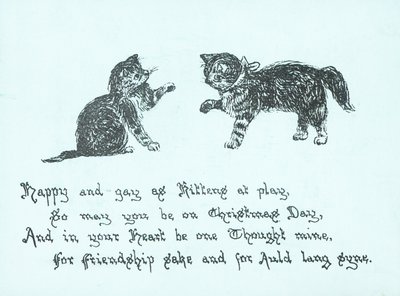 Happy and gay as Kittens at play,
So may you be on Christmas Day,
And in your Heart be one Thought mine,
For Friendship sake and for Auld lang syne.